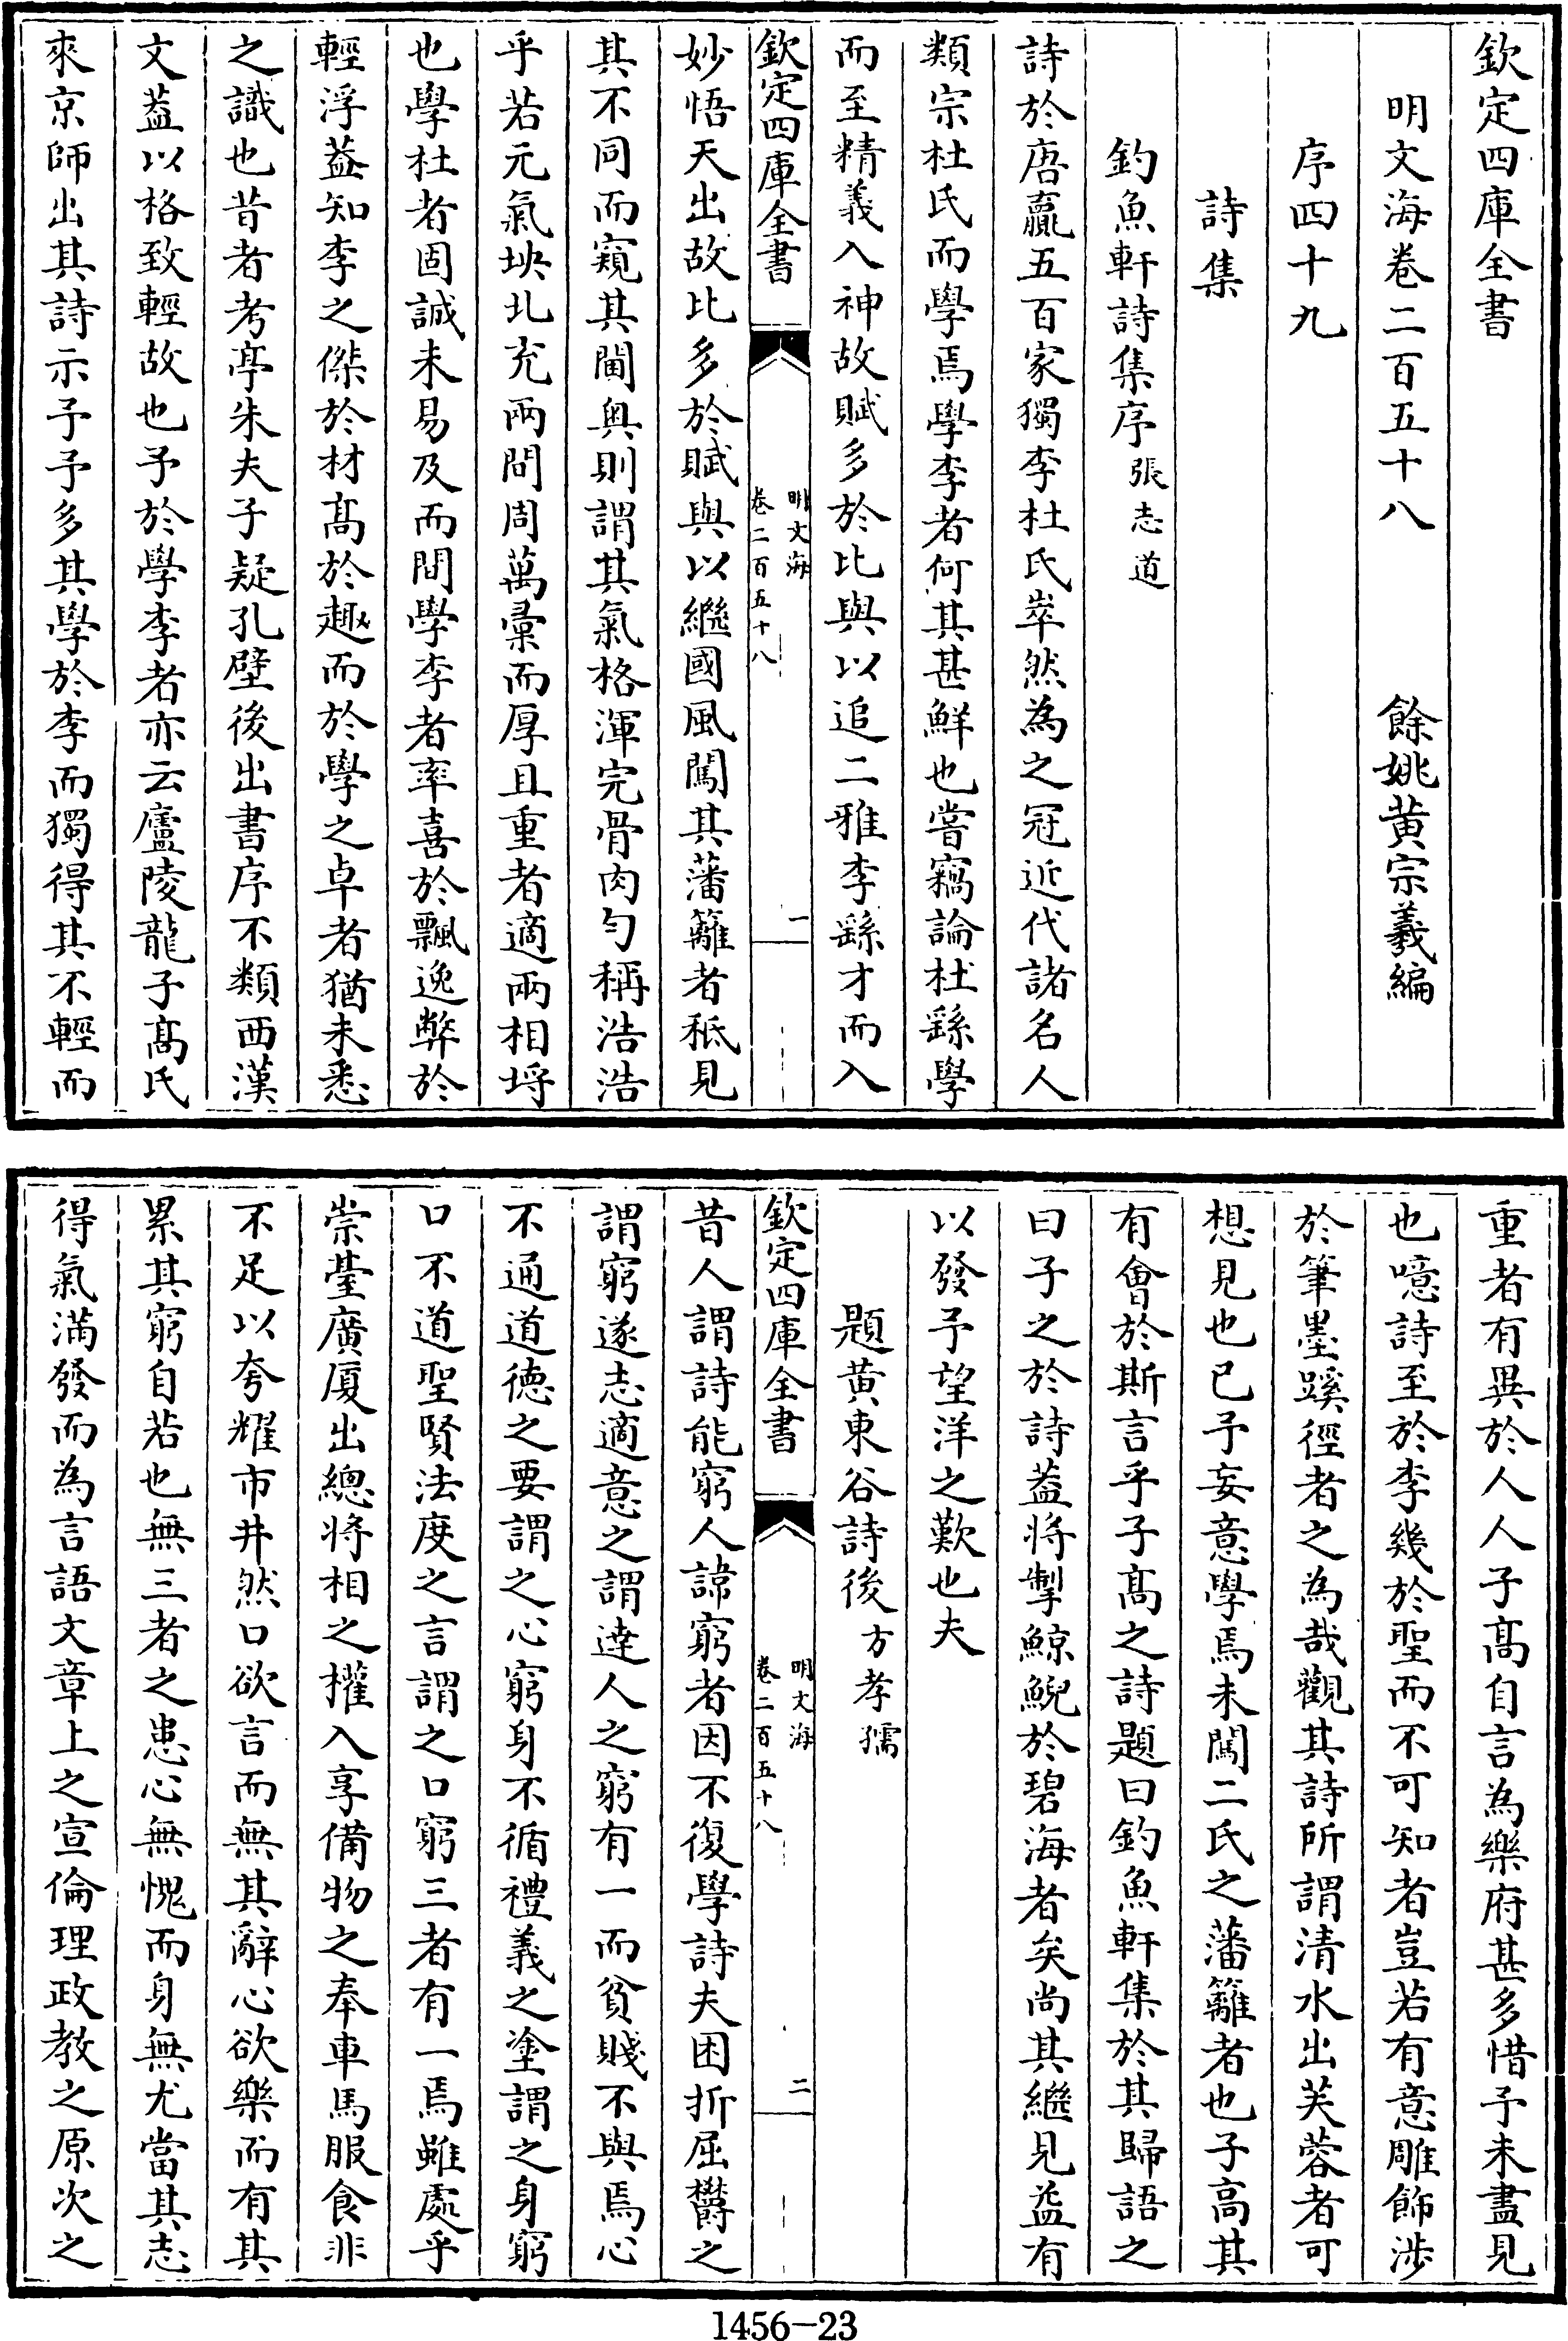 欽定四庫全書
明文海卷二百五十八　餘姚黄宗羲編
序四十九
詩集
釣魚軒詩集序張志道
詩於唐贏五百家獨李杜氏崒然為之冠近代諸名人
類宗杜氏而學焉學李者何其甚鮮也嘗竊論杜繇學
而至精義入神故賦多於比與以追二雅李繇才而入
欽定四庫全書
明文海
卷二百五十八
一
妙悟天出故比多於賦與以繼國風闖其藩籬者秪見
其不同而窺其閫奥則謂其氣格渾完骨肉勻稱浩浩
乎若元氣坱北充兩間周萬彙而厚且重者適兩相埒
也學杜者固誠未易及而間學李者率喜於飄逸弊於
輕浮葢知李之傑於材髙於趣而於學之卓者猶未悉
之識也昔者考亭朱夫子疑孔壁後出書序不類西漢
文葢以格致輕故也予於學李者亦云廬陵龍子髙氏
來京師出其詩示予予多其學於李而獨得其不輕而
重者有異於人人子髙自言為樂府甚多惜予未盡見
也噫詩至於李幾於聖而不可知者豈若有意雕飾涉
於筆墨蹊徑者之為哉觀其詩所謂清水出芙蓉者可
想見也已予妄意學焉未闖二氏之藩籬者也子高其
有會於斯言乎子髙之詩題曰釣魚軒集於其歸語之
曰子之於詩葢將掣鯨鯢於碧海者矣尚其繼見益有
以發予望洋之歎也夫
題黄東谷詩後方孝孺
欽定四庫全書
明文海
卷二百五十八
二
昔人謂詩能窮人諱窮者因不復學詩夫困折屈鬱之
謂窮遂志適意之謂逹人之窮有一而貧賤不與焉心
不通道德之要謂之心窮身不循禮義之塗謂之身窮
口不道聖賢法度之言謂之口窮三者有一焉雖處乎
崇臺廣厦出總將相之權入享備物之奉車馬服食非
不足以夸耀市井然口欲言而無其辭心欲樂而有其
累其窮自若也無三者之患心無愧而身無尤當其志
得氣滿發而為言語文章上之宣倫理政教之原次之
1456-23